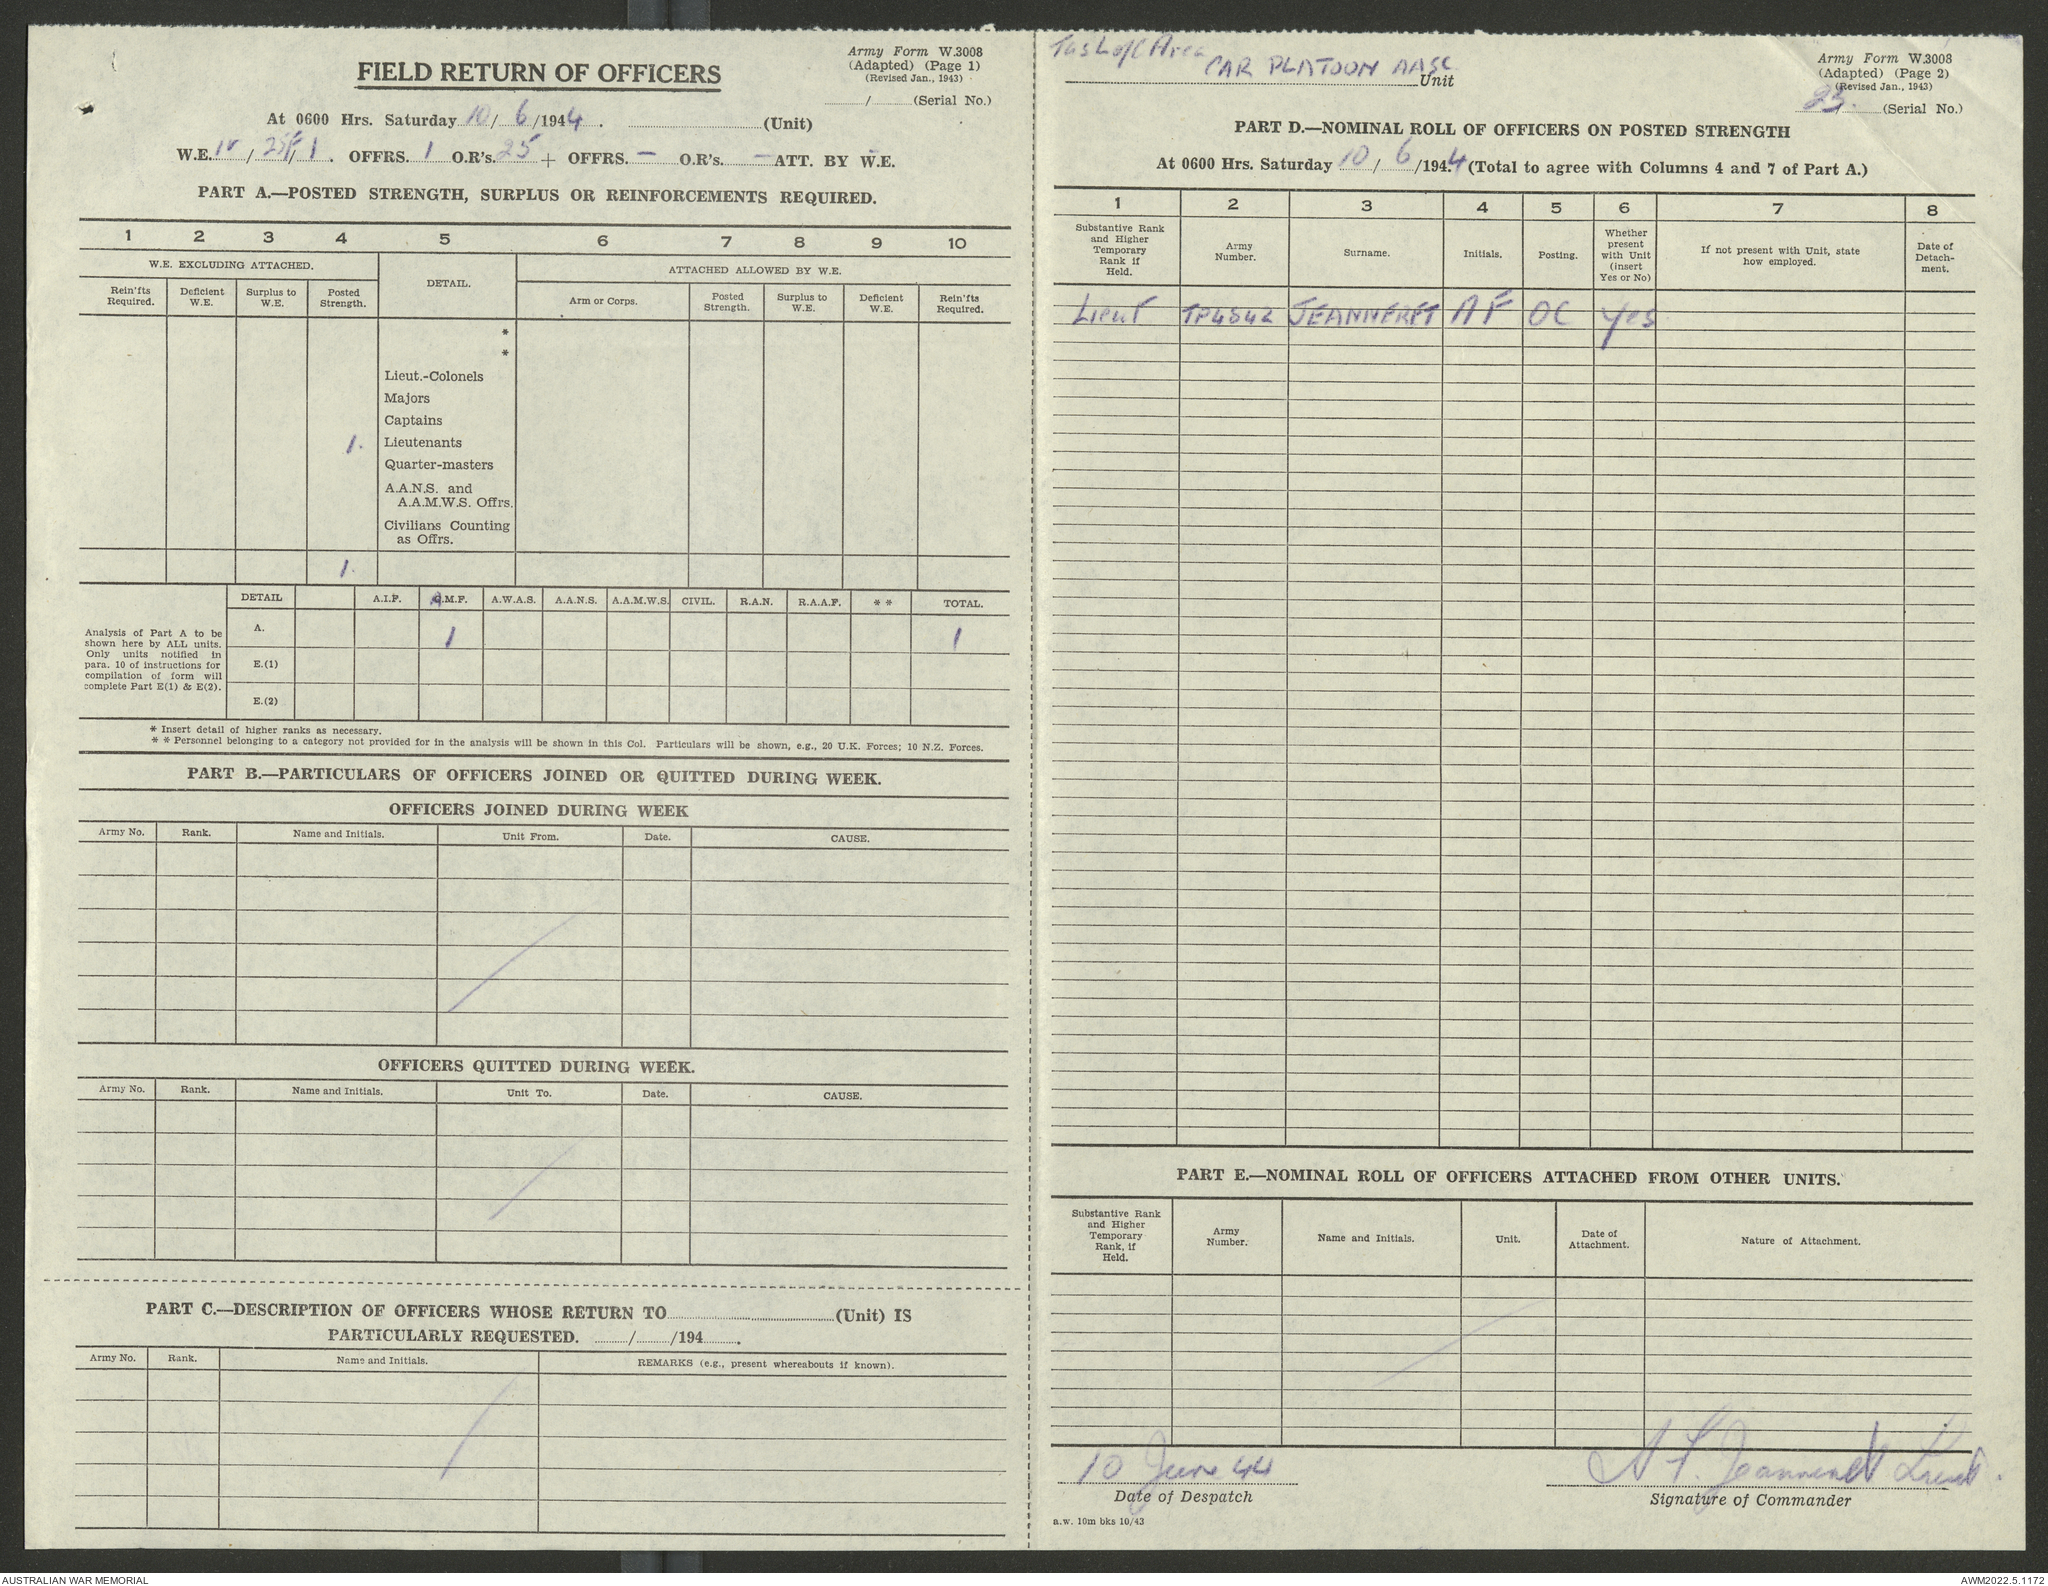 FIELD RETURN OF OFFICERS
Army Form W.3008
(Adapted) (Page 1)
(Revised Jan., 1943)
....../...... (Serial No.)
At 0600 Hrs. Saturday 10/6/1944. ...... (Unit)
W.E. IV / / 1. OFFRS. 1 O.R's. 25 + OFFRS. — O.R's. — ATT. BY W.E.
PART A.—POSTED STRENGTH, SURPLUS OR REINFORCEMENTS REQUIRED.
1 2 3 4 5 6 7 8 9 10
W.E. EXCLUDING ATTACHED. DETAIL. ATTACHED ALLOWED BY W.E.
Rein'fts Required. Deficient W.E. Surplus to W.E. Posted Strength. Arm or Corps. Posted Strength. Surplus to W.E. Deficient W.E. Rein'fts Required.
*
*
Lieut.-Colonels
Majors
Captains
1. Lieutenants
Quarter-masters
A.A.N.S. and
A.A.M.W.S. Offrs.
Civilians Counting
as Offrs.
1.
DETAIL A.I.F. A.M.F. A.W.A.S. A.A.N.S. A.A.M.W.S. CIVIL. R.A.N. R.A.A.F. * * TOTAL.
Analysis of Part A to be
shown here by ALL units.
Only units notified in
para. 10 of instructions for
compilation of form will
complete Part E(1) & E(2).
A. 1 1
E.(1)
E.(2)
* Insert detail of higher ranks as necessary.
* * Personnel belonging to a category not provided for in the analysis will be shown in this Col. Particulars will be shown, e.g., 20 U.K. Forces; 10 N.Z. Forces.
PART B.—PARTICULARS OF OFFICERS JOINED OR QUITTED DURING WEEK.
OFFICERS JOINED DURING WEEK
Army No. Rank. Name and Initials. Unit From. Date. CAUSE.
OFFICERS QUITTED DURING WEEK.
Army No. Rank. Name and Initials. Unit To. Date. CAUSE.
PART C.—DESCRIPTION OF OFFICERS WHOSE RETURN TO ...... (Unit) IS
PARTICULARLY REQUESTED. ....../....../194.......
Army No. Rank. Name and Initials. REMARKS (e.g., present whereabouts if known).
Area
CAR PLATOON AASC
Unit
Army Form W.3008
(Adapted) (Page 2)
(Revised Jan., 1943)
23. (Serial No.)
PART D.—NOMINAL ROLL OF OFFICERS ON POSTED STRENGTH
At 0600 Hrs. Saturday 10/6/1944 (Total to agree with Columns 4 and 7 of Part A.)
1 2 3 4 5 6 7 8
Substantive Rank and Higher Temporary Rank if Held. Army Number. Surname. Initials. Posting. Whether present with Unit (insert Yes or No) If not present with Unit, state how employed. Date of Detach-ment.
Lieut TP4842 JEANNERET AF OC Yes
PART E.—NOMINAL ROLL OF OFFICERS ATTACHED FROM OTHER UNITS.
Substantive Rank and Higher Temporary Rank, if Held. Army Number. Name and Initials. Unit. Date of Attachment. Nature of Attachment.
10 June 44
Date of Despatch
A F. Jeanneret Lieut.
Signature of Commander
a.w. 10m bks 10/43
AUSTRALIAN WAR MEMORIAL
AWM2022.5.1172